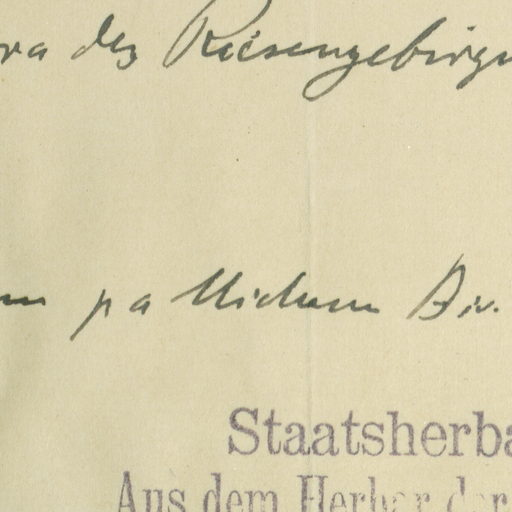 ra des Riesengebirg
pa
Staatsherba
Aus dem Herbar der